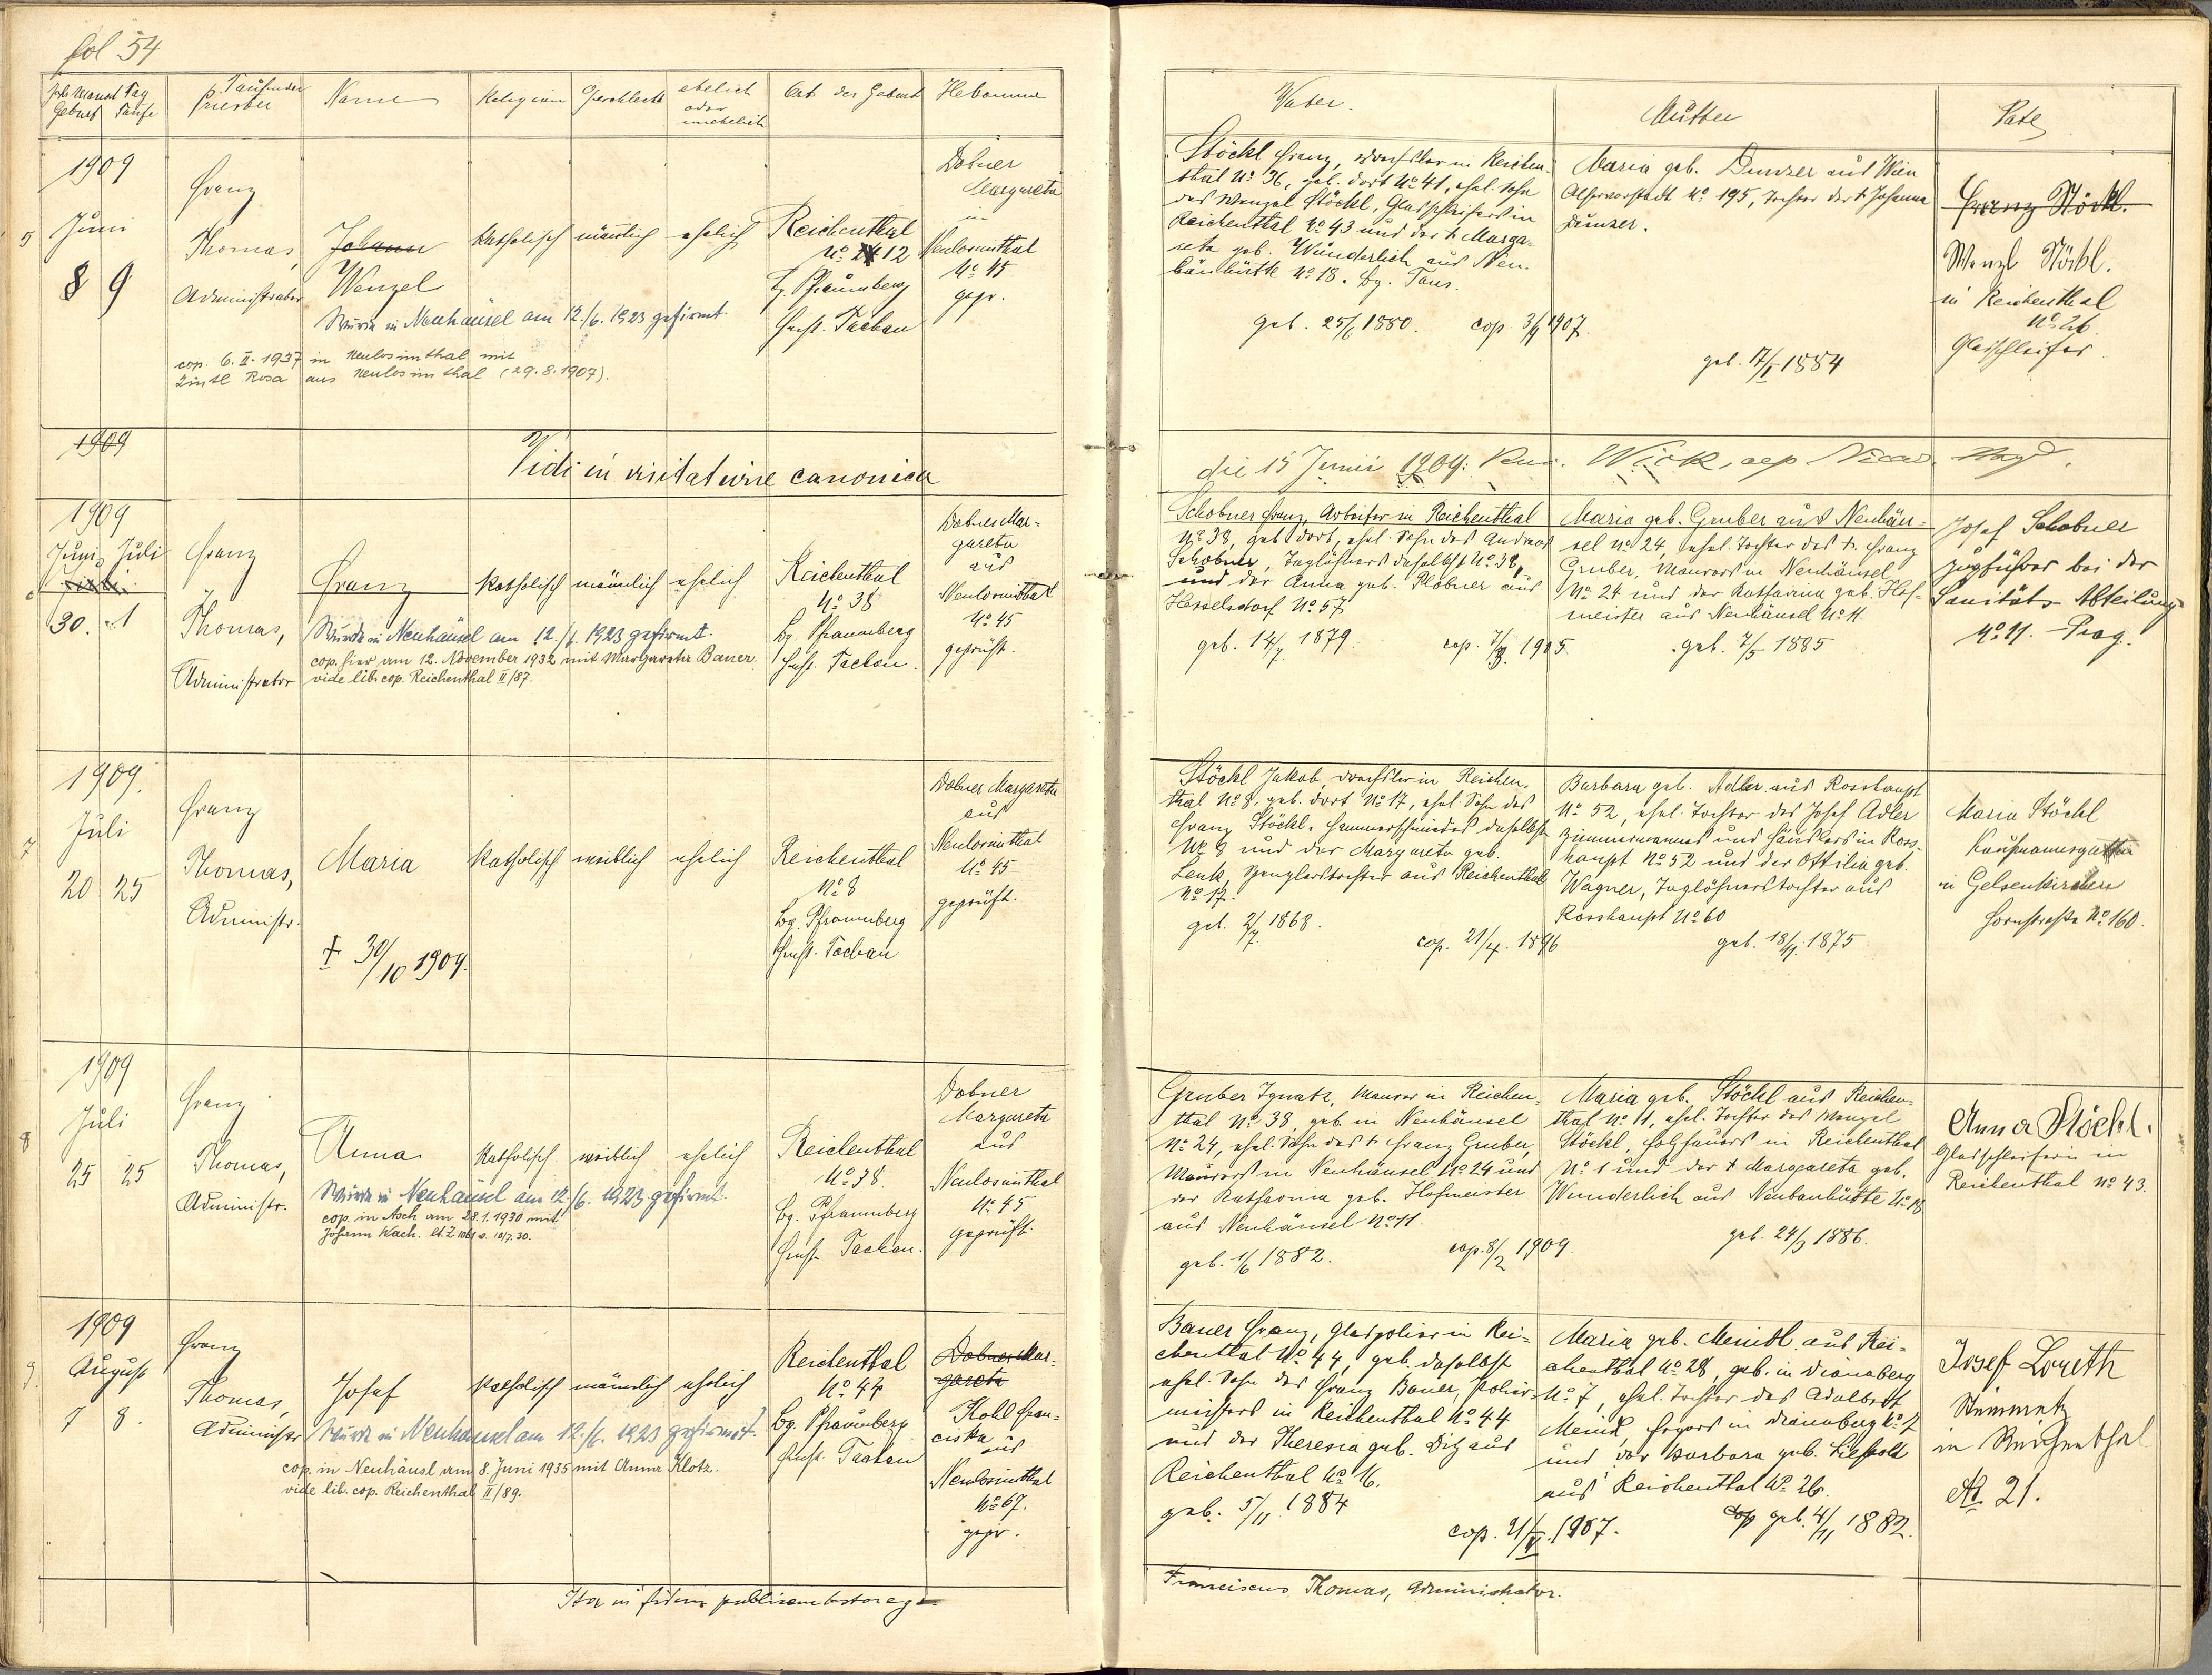 fol 54
Jahr Monat Tag
Geburt Taufe
Taufender
Priester
Name
Religion
Geschlecht
ehelich
oder
unehelich
Ort der Geburt
Hebamme
Vater.
Mutter
Pate
1909
5 Juni
8 9
Franz
Thomas,
Administrator
Johann
Wenzel
Wurde in Neuhäusel am 12./6. 1923 gefirmt.
cop. 6. II. 1937 in Neulosimthal mit
Zintl Rosa aus Neulosimthal (29.8.1907).
katholisch
männlich
ehelich
Reichenthal
No 12
Bz. Pfraumberg
Hptsft. Tachau
Dobner
Margareta
in
Neulosimthal
No 45
gepr.
Stöckl Franz, Drechsler in Reichen-
thal No 36, geb. dort No 41, ehel. Sohn
des Wenzel Stöckl, Glasschleifers in
Reichenthal No 43 und der † Marga-
reta geb. Wunderlich aus Neu-
bäuhütte No 18. Bz. Taus.
geb. 25/6 1880. cop. 1907.
Maria geb. Dunzer aus Wien
Alservorstadt No 195, Tochter der † Johanna
Dunzer.
geb. 17/I 1884
Franz Stöckl.
Wenzl Stöckl.
in Reichenthal
No 26
Glasschleifer
1909
Vidi in visitatione canonica
die 15 Junii 1909:
1909
Juni Juli
30. 1
Franz
Thomas,
Administrator
Franz
Wurde in Neuhäusel am 12./6. 1923 gefirmt.
cop. hier am 12. November 1932 mit Margareta Bauer.
vide lib. cop. Reichenthal II/87.
katholisch
männlich
ehelich
Reichenthal
No 38
Bz. Pfraumberg
Hptsft. Tachau.
Dobner Mar-
gareta
aus
Neulosimthal
No 45
geprüft.
Schobner Franz, Arbeiter in Reichenthal
No 38, geb. dort, ehel. Sohn des Andreas
Schobner, Taglöhners daselbst No 38,
und der Anna geb. Plobner aus
Hesselsdorf No 57
geb. 14/7 1879. cop. 1905.
Maria geb. Gruber aus Neuhäu-
sel No 24, ehel. Tochter des † Franz
Gruber, Maurers in Neuhäusel
No 24 und der Katharina geb. Hof-
meister aus Neuhäusel No 11.
geb. 7/5 1885
Josef Schobner
Zugführer bei der
Sanitäts Abteilung
No 11. Prag.
1909.
7 Juli
20 25
Franz
Thomas,
Administr.
Maria
† 30/10 1909.
katholisch
weiblich
ehelich
Reichenthal
No 8
Bz. Pfraumberg
Hptsft. Tachau
Dobner Margareta
aus
Neulosimthal
No 45
geprüft.
Stöckl Jakob, Drechsler in Reichen-
thal No 8, geb. dort No 17, ehel. Sohn des
Franz Stöckl, Hammerschmiedes daselbst
No 9 und der Margareta geb.
Lenk, Spenglerstochter aus Reichenthal
No 17.
geb. 2/7. 1868. cop. 21/4. 1896
Barbara geb. Adler aus Rosshaupt
No 52, ehel. Tochter des Josef Adler
Zimmermannes und Häuslers in Ross-
haupt No 52 und der Ottilia geb.
Wagner, Taglöhnerstochter aus
Rosshaupt No 60
geb. 18/11. 1875
Maria Stöckl
Kaufmannsgattin
in Gelsenkirchen
Hornstraße No 160.
1909
8 Juli
25 25
Franz
Thomas,
Administr.
Anna
Wurde in Neuhäusel am 12./6. 1923 gefirmt.
cop. in Asch am 28.1.1930 mit
Johann Wach. lt. Z 1061 v. 10/7. 30.
katholisch.
weiblich
ehelich
Reichenthal
No 38.
Bz. Pfraumberg
Hptsft. Tachau.
Dobner
Margareta
aus
Neulosimthal
No 45
geprüft.
Gruber Ignatz, Maurer in Reichen-
thal No 38, geb. in Neuhäusel
No 24, ehel. Sohn des † Franz Gruber,
Maurers in Neuhäusel No 24 und
der Katharina geb. Hofmeister
aus Neuhäusel No 11.
geb. 1/6 1882. cop. 8/2 1909.
Maria geb. Stöckl aus Reichen-
thal No 11, ehel. Tochter des Wenzel
Stöckl, Holzhauers in Reichenthal
No 1 und der † Margareta geb.
Wunderlich aus Neubauhütte No 18
geb. 24/3 1886.
Anna Stöckl.
Glasschleiferin in
Reichenthal No 43.
1909
9. August
7 8.
Franz
Thomas,
Administr
Josef
Wurde in Neuhäusel am 12./6. 1923 gefirmt.
cop. in Neuhäusl am 8. Juni 1935 mit Anna Klotz.
vide lib. cop. Reichenthal II/89.
katholisch
männlich
ehelich
Reichenthal
No 44
Bz. Pfraumberg
Hptsft. Tachau
Dobner Mar-
gareta
Kohl Fran-
ciska
aus
Neulosimthal
No 67.
gepr.
Bauer Franz, Glaspolier in Rei-
chenthal No 44, geb. daselbst
ehel. Sohn des Franz Bauer, Polier-
meisters in Reichenthal No 44
und der Theresia geb. Ditz aus
Reichenthal No 16.
geb. 5/11. 1884
cop. 1907.
Maria geb. Meindl aus Rei-
chenthal No 28, geb. in Dianaberg
No 7, ehel. Tochter des Adalbert
Meindl, Hegers in Dianaberg No 7
und der Barbara geb. Liepold
aus Reichenthal No 26.
cop geb. 4/11 1882.
Josef Loreth
Steinmetz
in Reichenthal
No 21.
Ita in fidem publicam testor ego
Franciscus Thomas, Administrator.